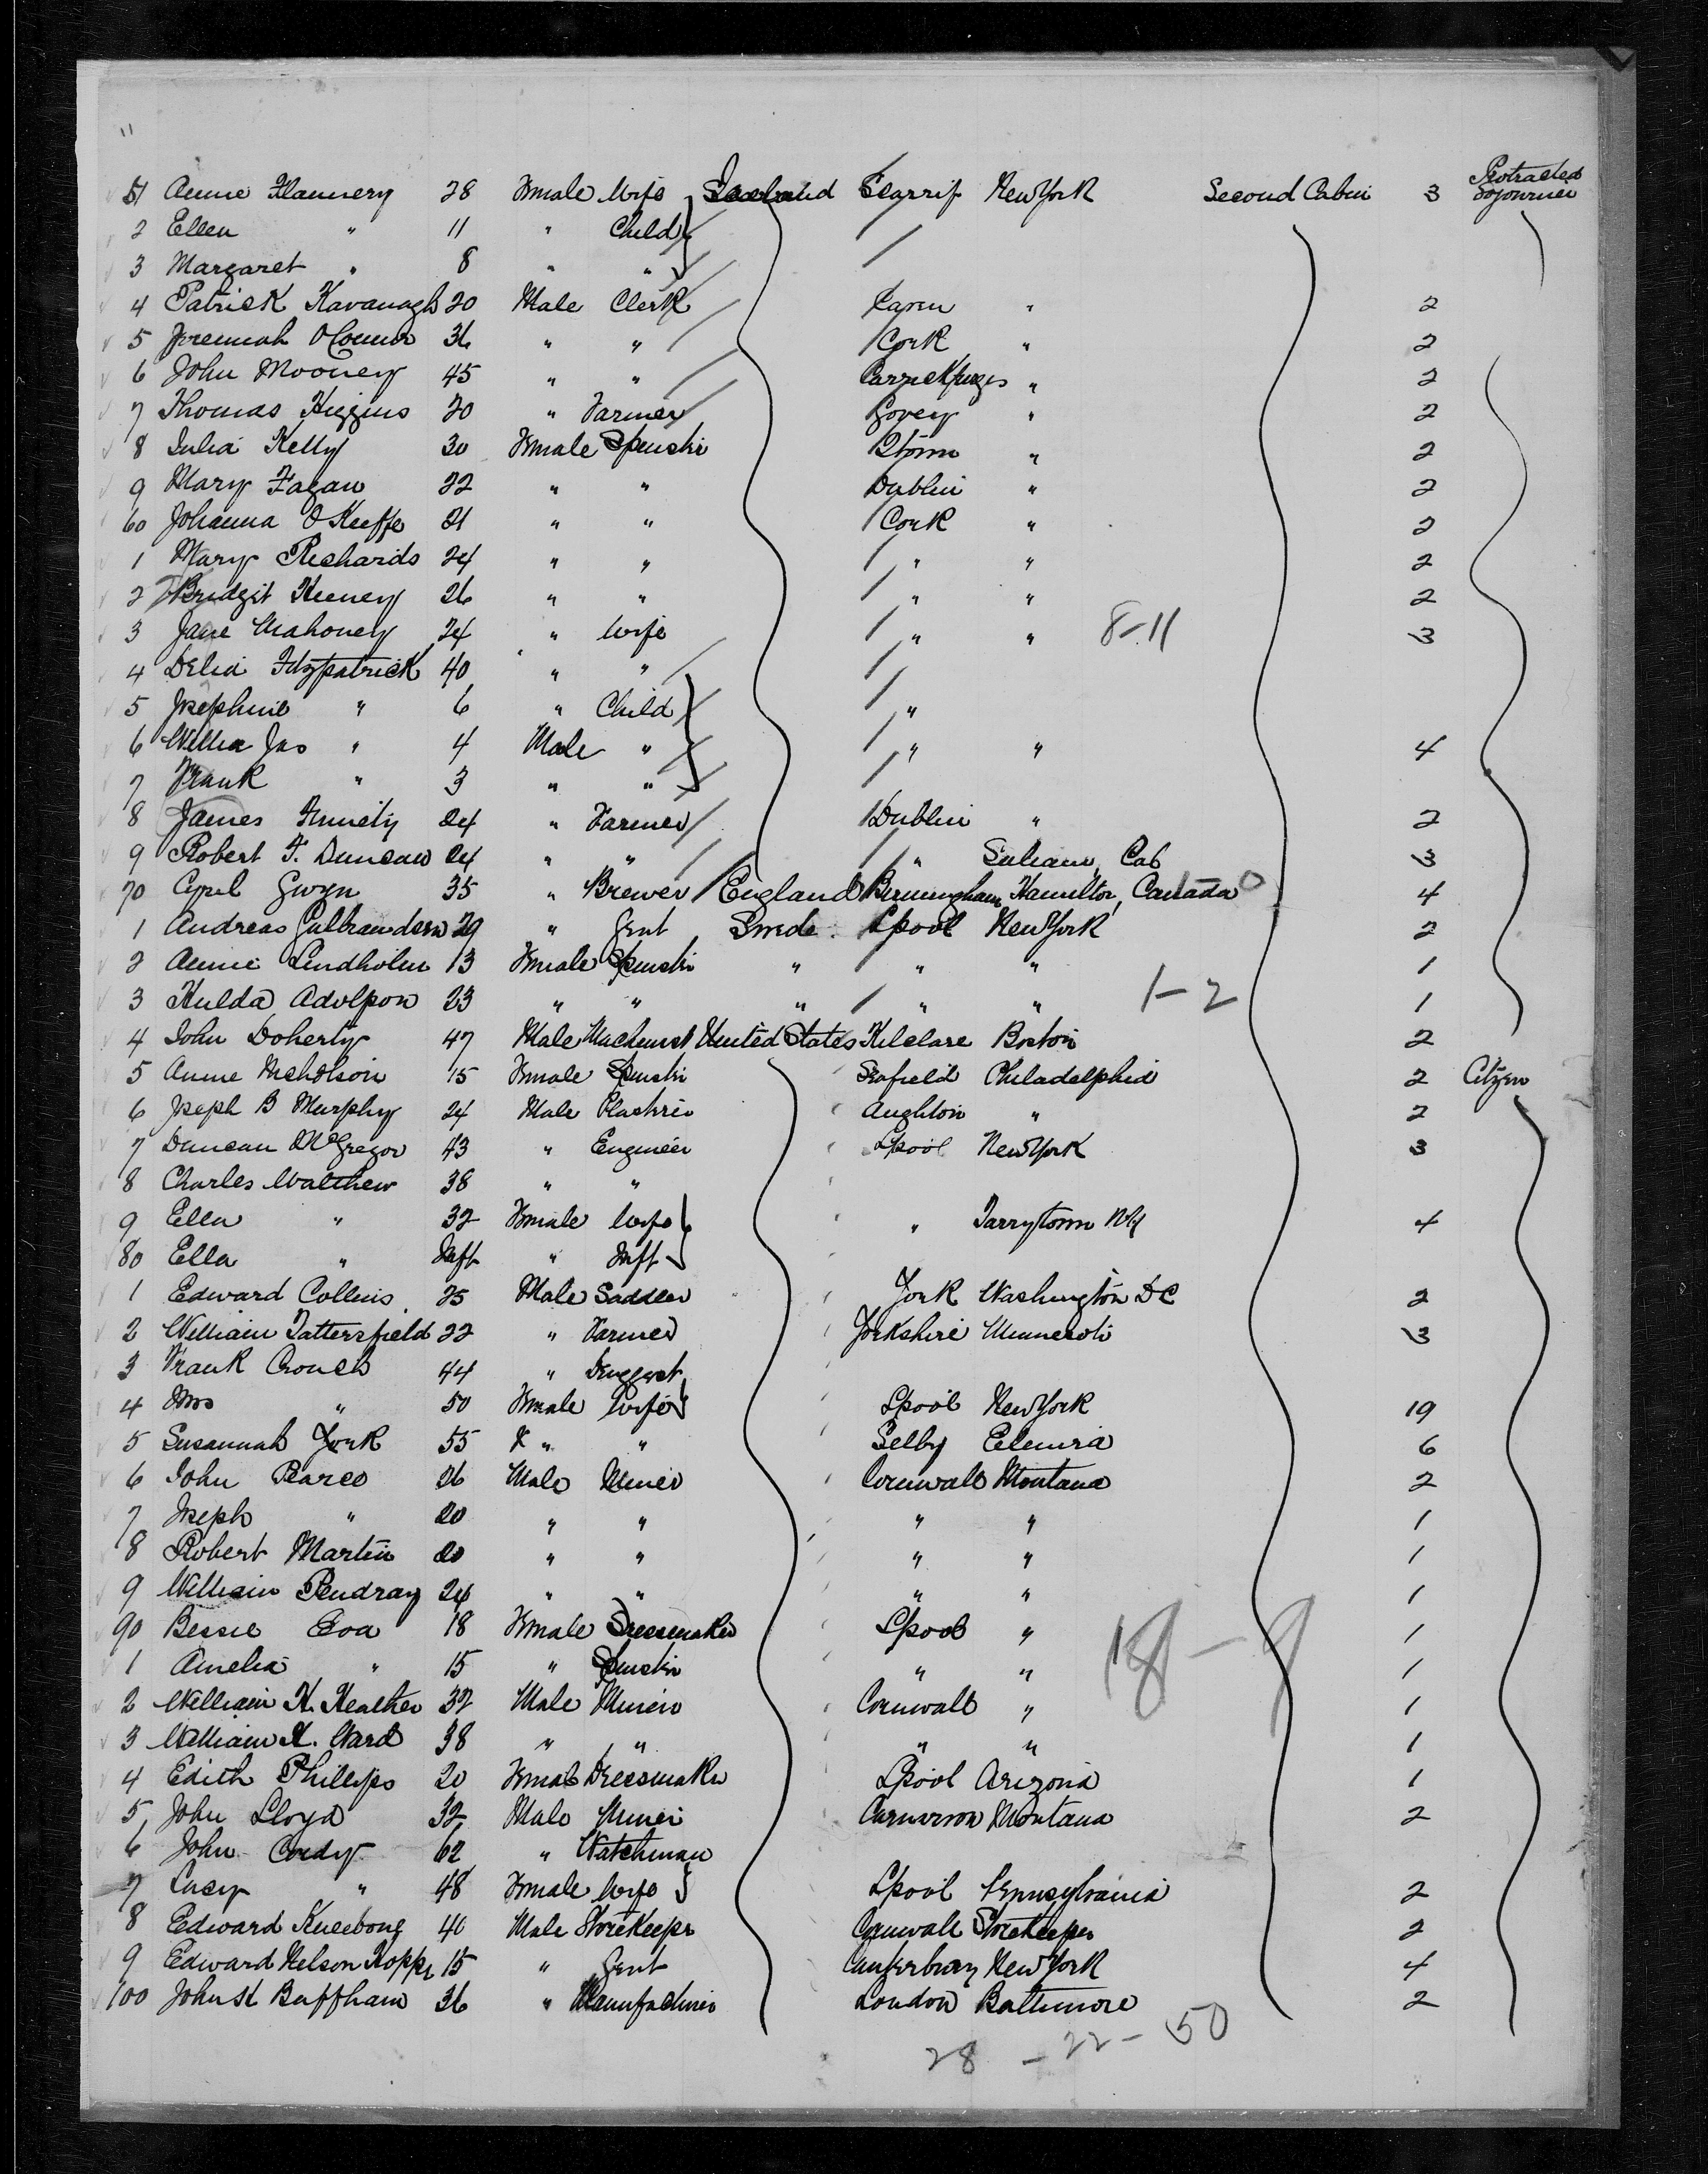 "
51 Annie Flannery 28 Female Wife Ireland Scarrif New York Second Cabin 3 Protracted Sojourner
2 Ellen " 11 " Child
3 Margaret " 8 " "
4 Patrick Kavanagh 20 Male Clerk " 2
5 Jeremiah O'Connor 36 " " Cork " 2
6 John Mooney 45 " " Carrickfurgis " 2
7 Thomas Higgins 20 " Farmer Gorey " 2
8 Julia Kelly 30 Female Spinster " 2
9 Mary Fagan 22 " " Dublin " 2
60 Johanna O'Keeffe 21 " " Cork " 2
1 Mary Richards 24 " " " " 2
2 Bridgit Keeney 26 " " " " 2
3 Jane Mahoney 24 " Wife " " 8-11 3
4 Delia Fitzpatrick 40 " "
5 Josephine " 6 " Child "
6 Willia Jas " 4 Male " " " 4
7 Frank " 3 " "
8 James 24 " Farmer Dublin " 2
9 Robert F. Duncan 24 " " " Cal 3
70 Cyril Gwyn 35 " Brewer England Birmingham Hamilton, Canada 4
1 Andreas Gulbrandsen 29 " Gent Swede. Lpool New York 2
2 Annie Lindholm 13 Female Spinster " " " 1
3 Hulda Adolpson 23 " " " " " 1-2 1
4 John Doherty 47 Male Machinist United States Kilclare Boston 2
5 Annie Nicholson 15 Female Spinster Seafield Philadelphia 2 Citizen
6 Joseph B Murphy 24 Male Plasterer Aughton " 2
7 Duncan McGregor 43 " Engineer Lpool New York 3
8 Charles Walthew 38 " "
9 Ellen " 32 Female Wife " Tarrytown NY 4
80 Ella " Inft " Inft
1 Edward Collins 25 Male Saddler York Washington DC 2
2 William Tattersfield 22 " Farmer Yorkshire Minnesota 3
3 Frank Crouch 44 " Druggist
4 Mrs " 50 Female Wife Lpool New York 19
5 Susannah York 55 X " " Selby Elmira 6
6 John Pearce 26 Male Miner Cornwall Montana 2
7 Joseph " 20 " " " " 1
8 Robert Martin 20 " " " " 1
9 William Pendray 24 " " " " 1
90 Bessie Eva 18 Female Dressmaker Lpool " 18-9 1
1 Amelia " 15 " Spinster " " 1
2 William H. Heather 32 Male Miner Cornwall " 1
3 William H. Ward 38 " " " " 1
4 Edith Phillips 20 Female Dressmaker Lpool Arizona 1
5 John Lloyd 32 Male Miner Carnarvon Montana 2
6 John Cordy 62 " Watchman
7 Lucy " 48 Female Wife Lpool Pennsylvania 2
8 Edward Kneebone 40 Male Storekeeper Cornwall Storekeeper 2
9 Edward Nelson Hopps 15 " Gent Canterbury New York 4
100 John St Buffham 36 " Manufacturer London Baltimore 2
28 - 22 - 50